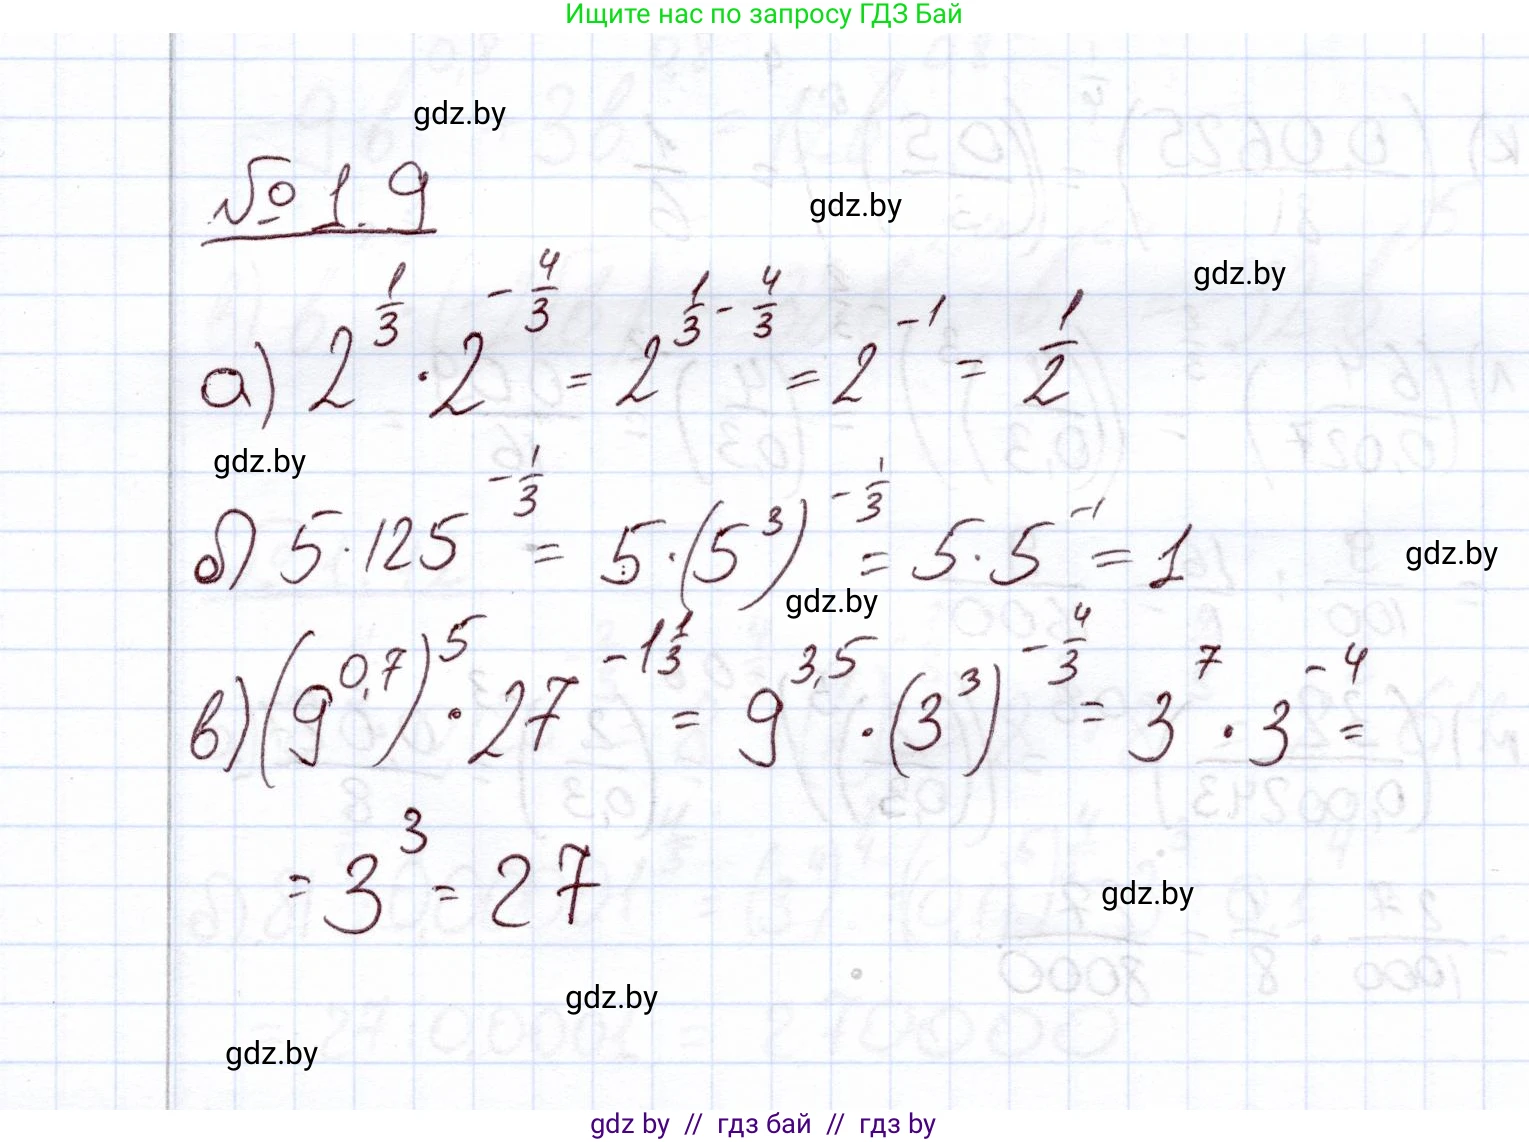 Ищите нас по запросу ГДЗ Бай
gdz.by
№ 1.9
gdz.by
gdz.by
а) 2^{1/3} · 2^{-4/3} = 2^{1/3 - 4/3} = 2^{-1} = 1/2
gdz.by
б) 5 · 125^{-1/3} = 5 · (5^3)^{-1/3} = 5 · 5^{-1} = 1
gdz.by
gdz.by
в) (9^{0,7})^5 · 27^{-1 1/3} = 9^{3,5} · (3^3)^{-4/3} = 3^7 · 3^{-4} =
= 3^3 = 27
gdz.by
gdz.by
gdz.by
gdz by // гдз бай // гдз by